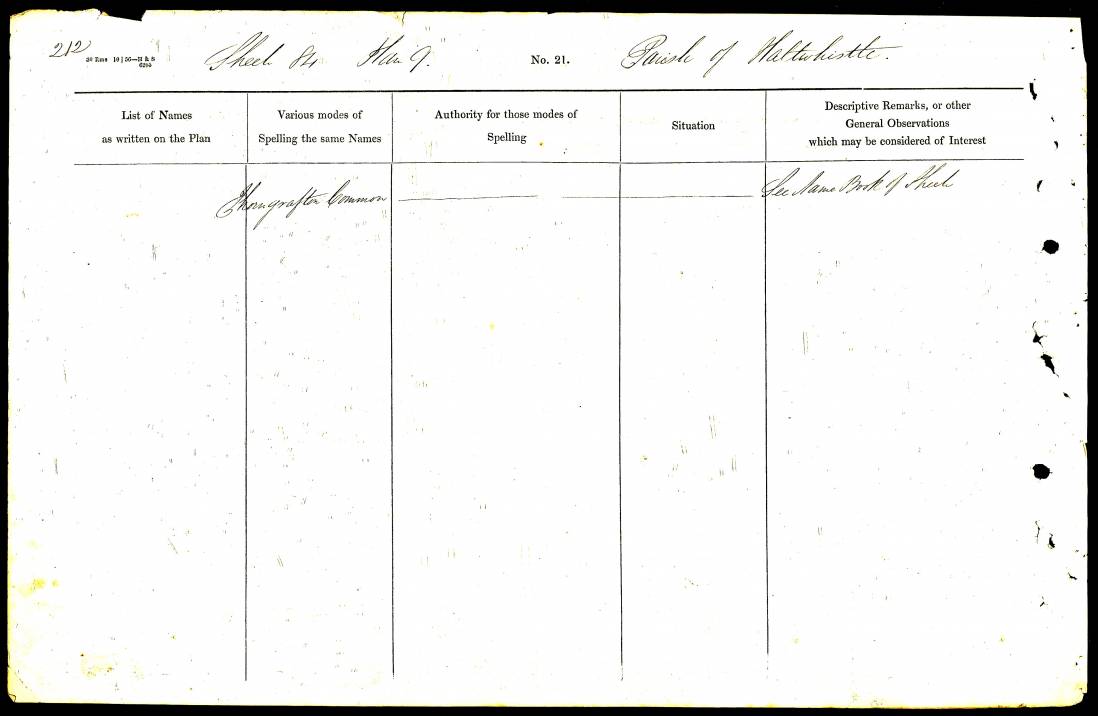 212
Sheet 84 Plan 9. No. 21. Parish of Haltwhistle.
List of Names
as written on the Plan
Various modes of
Spelling the same Names
Authority for those modes of
Spelling
Situation
Descriptive Remarks, or other
General Observations
which may be considered of Interest
Thorngrafton Common
See Name Book of Sheet